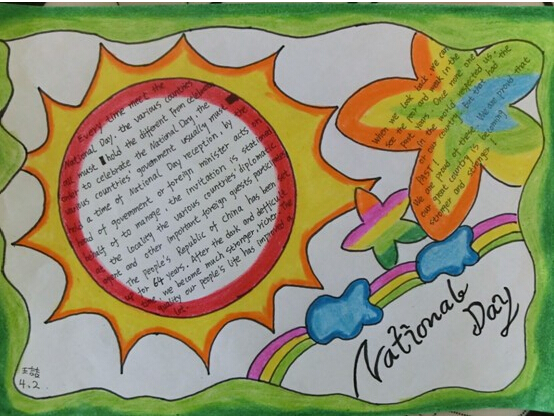 Every time meet the
National Day the various countries
must hold the different from celebra
to celebrate the National Day, the
various countries' government usually must
hold a time of National Day reception, by
head of government or foreign minister acts on
behalf of to manage, the invitation is stational
at the locality the various countries' diplomatic
and other important foreign guests participate
The people's Republic of China has been
for 64 years. After the dark and difficult
time, we become much stronger, richer
our people's life has improved a
lot.
When we look back, we can
see the in the
past Once no one
in the world respected us,
or country, but they had the
past !
We are proud of them! We are proud that
our great country is becoming
stronger and stronger
National
Day
4.2